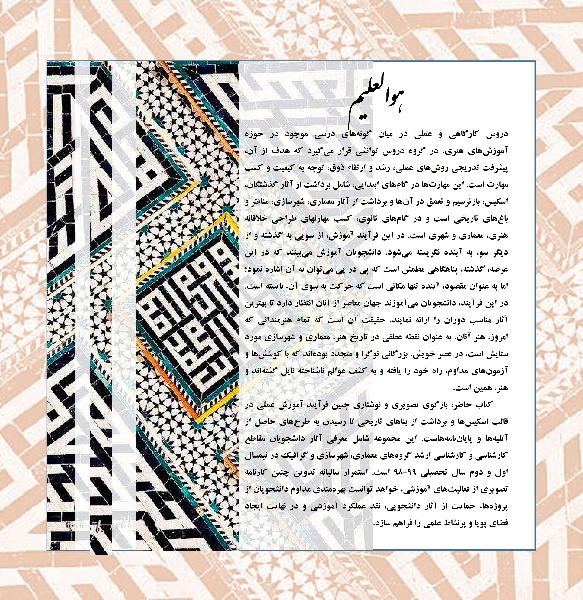 هوالعلیم
دروس کارگاهی و عملی در میان گونه‌های درسی موجود در حوزه
آموزش‌های هنری، در گروه دروس توانشی قرار می‌گیرد که هدف از آن،
پیشرفت تدریجی روش‌های عملی، رشد و ارتقاء ذوق، توجه به کیفیت و کسب
مهارت است. این مهارت‌ها در گام‌های ابتدایی، شامل برداشت از آثار گذشتگان،
اسکیس، بازترسیم و تعمق در آن‌ها و برداشت از آثار معماری، شهرسازی، مناظر و
باغ‌های تاریخی است و در گام‌های ثانوی، کسب مهارتهای طراحی خلاقانه
هنری، معماری و شهری است. در این فرآیند آموزش، از سویی به گذشته و از
دیگر سو، به آینده نگریسته می‌شود. دانشجویان آموزش می‌بینند که در این
عرصه، گذشته، پناهگاهی مطمئن است که پی در پی می‌توان به آن اشاره نمود؛
اما به عنوان مقصود، آینده تنها مکانی است که حرکت به سوی آن، بایسته است.
در این فرآیند، دانشجویان می‌آموزند جهان معاصر از آنان انتظار دارد تا بهترین
آثار مناسب دوران را ارائه نمایند. حقیقت آن است که تمام هنرمندانی که
امروز، هنر آنان، به عنوان نقطه عطفی در تاریخ هنر، معماری و شهرسازی مورد
ستایش است، در عصر خویش، بزرگانی نوگرا و متجدد بوده‌اند که با کوشش‌ها و
آزمون‌های مداوم، راه خود را یافته و به کشف عوالم ناشناخته نایل گشته‌اند و
هنر، همین است.
کتاب حاضر، بازگوی تصویری و نوشتاری چنین فرآیند آموزش عملی در
قالب اسکیس‌ها و برداشت از بناهای تاریخی تا رسیدن به طرح‌های حاصل از
آتلیه‌ها و پایان‌نامه‌هاست. این مجموعه شامل معرفی آثار دانشجویان مقاطع
کارشناسی و کارشناسی ارشد گروه‌های معماری، شهرسازی و گرافیک در نیمسال
اول و دوم سال تحصیلی ۹۹-۹۸ است. استمرار سالیانه تدوین چنین کارنامه
تصویری از فعالیت‌های آموزشی، خواهد توانست بهره‌مندی مداوم دانشجویان از
پروژه‌ها، حمایت از آثار دانشجویی، نقد عملکرد آموزشی و در نهایت ایجاد
فضای پویا و پرنشاط علمی را فراهم سازد.